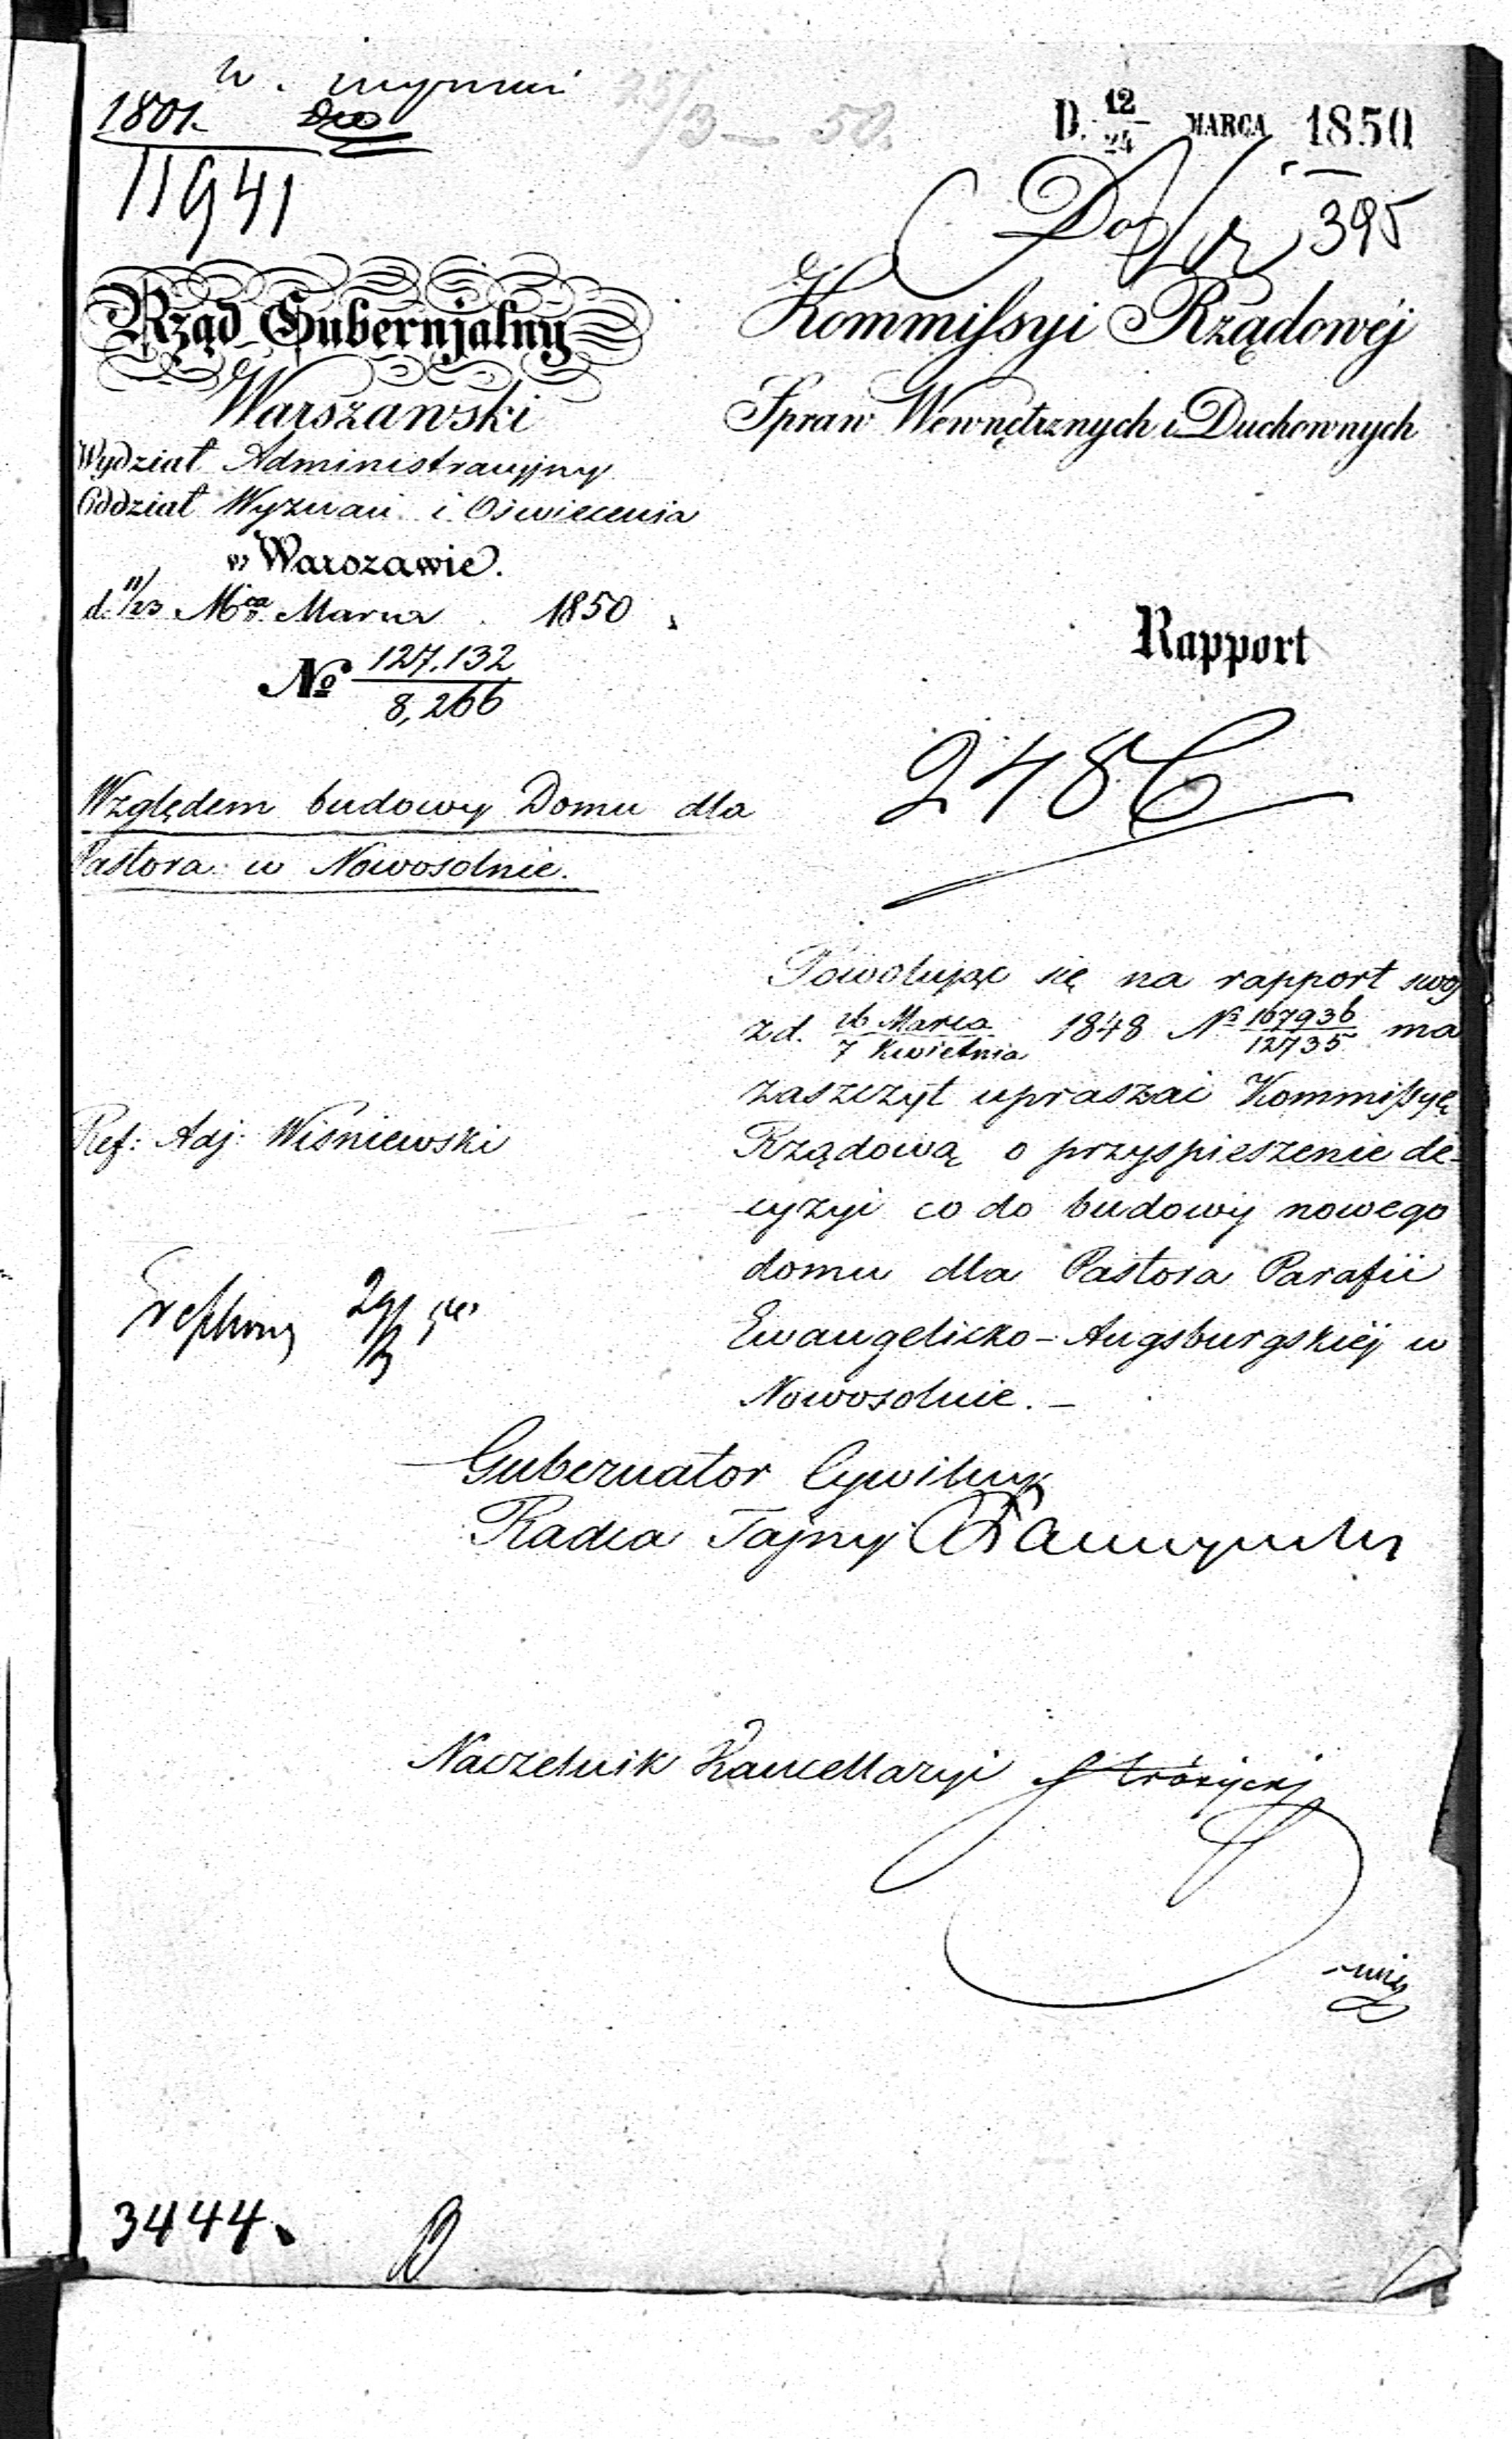 1801.
11941
25/3 – 50.
D. 12/24 MARCA 1850
Do 395
Rząd Gubernjalny
Warszawski
Wydział Administracyjny
Oddział Wyznań i Oświecenia
w Warszawie.
d. 11/23 Mca Marca 1850
No 127.132/8,266
Względem budowy Domu dla
Pastora w Nowosolnie.
Ref: Adj: Wiśniewski
Kommissyi Rządowéj
Spraw Wewnętrznych i Duchownych
Rapport
2486
Powołując się na rapport swój
z d. 26 Marca/7 Kwietnia 1848 No 167936/12735 ma
zaszczyt upraszać Kommissyę
Rządową o przyspieszenie de-
cyzyi co do budowy nowego
domu dla Pastora Parafii
Ewangelicko-Augsburgskiéj w
Nowosolnie. –
Gubernator Cywilny
Radca Tajny
Naczelnik Kancellaryi
3444.